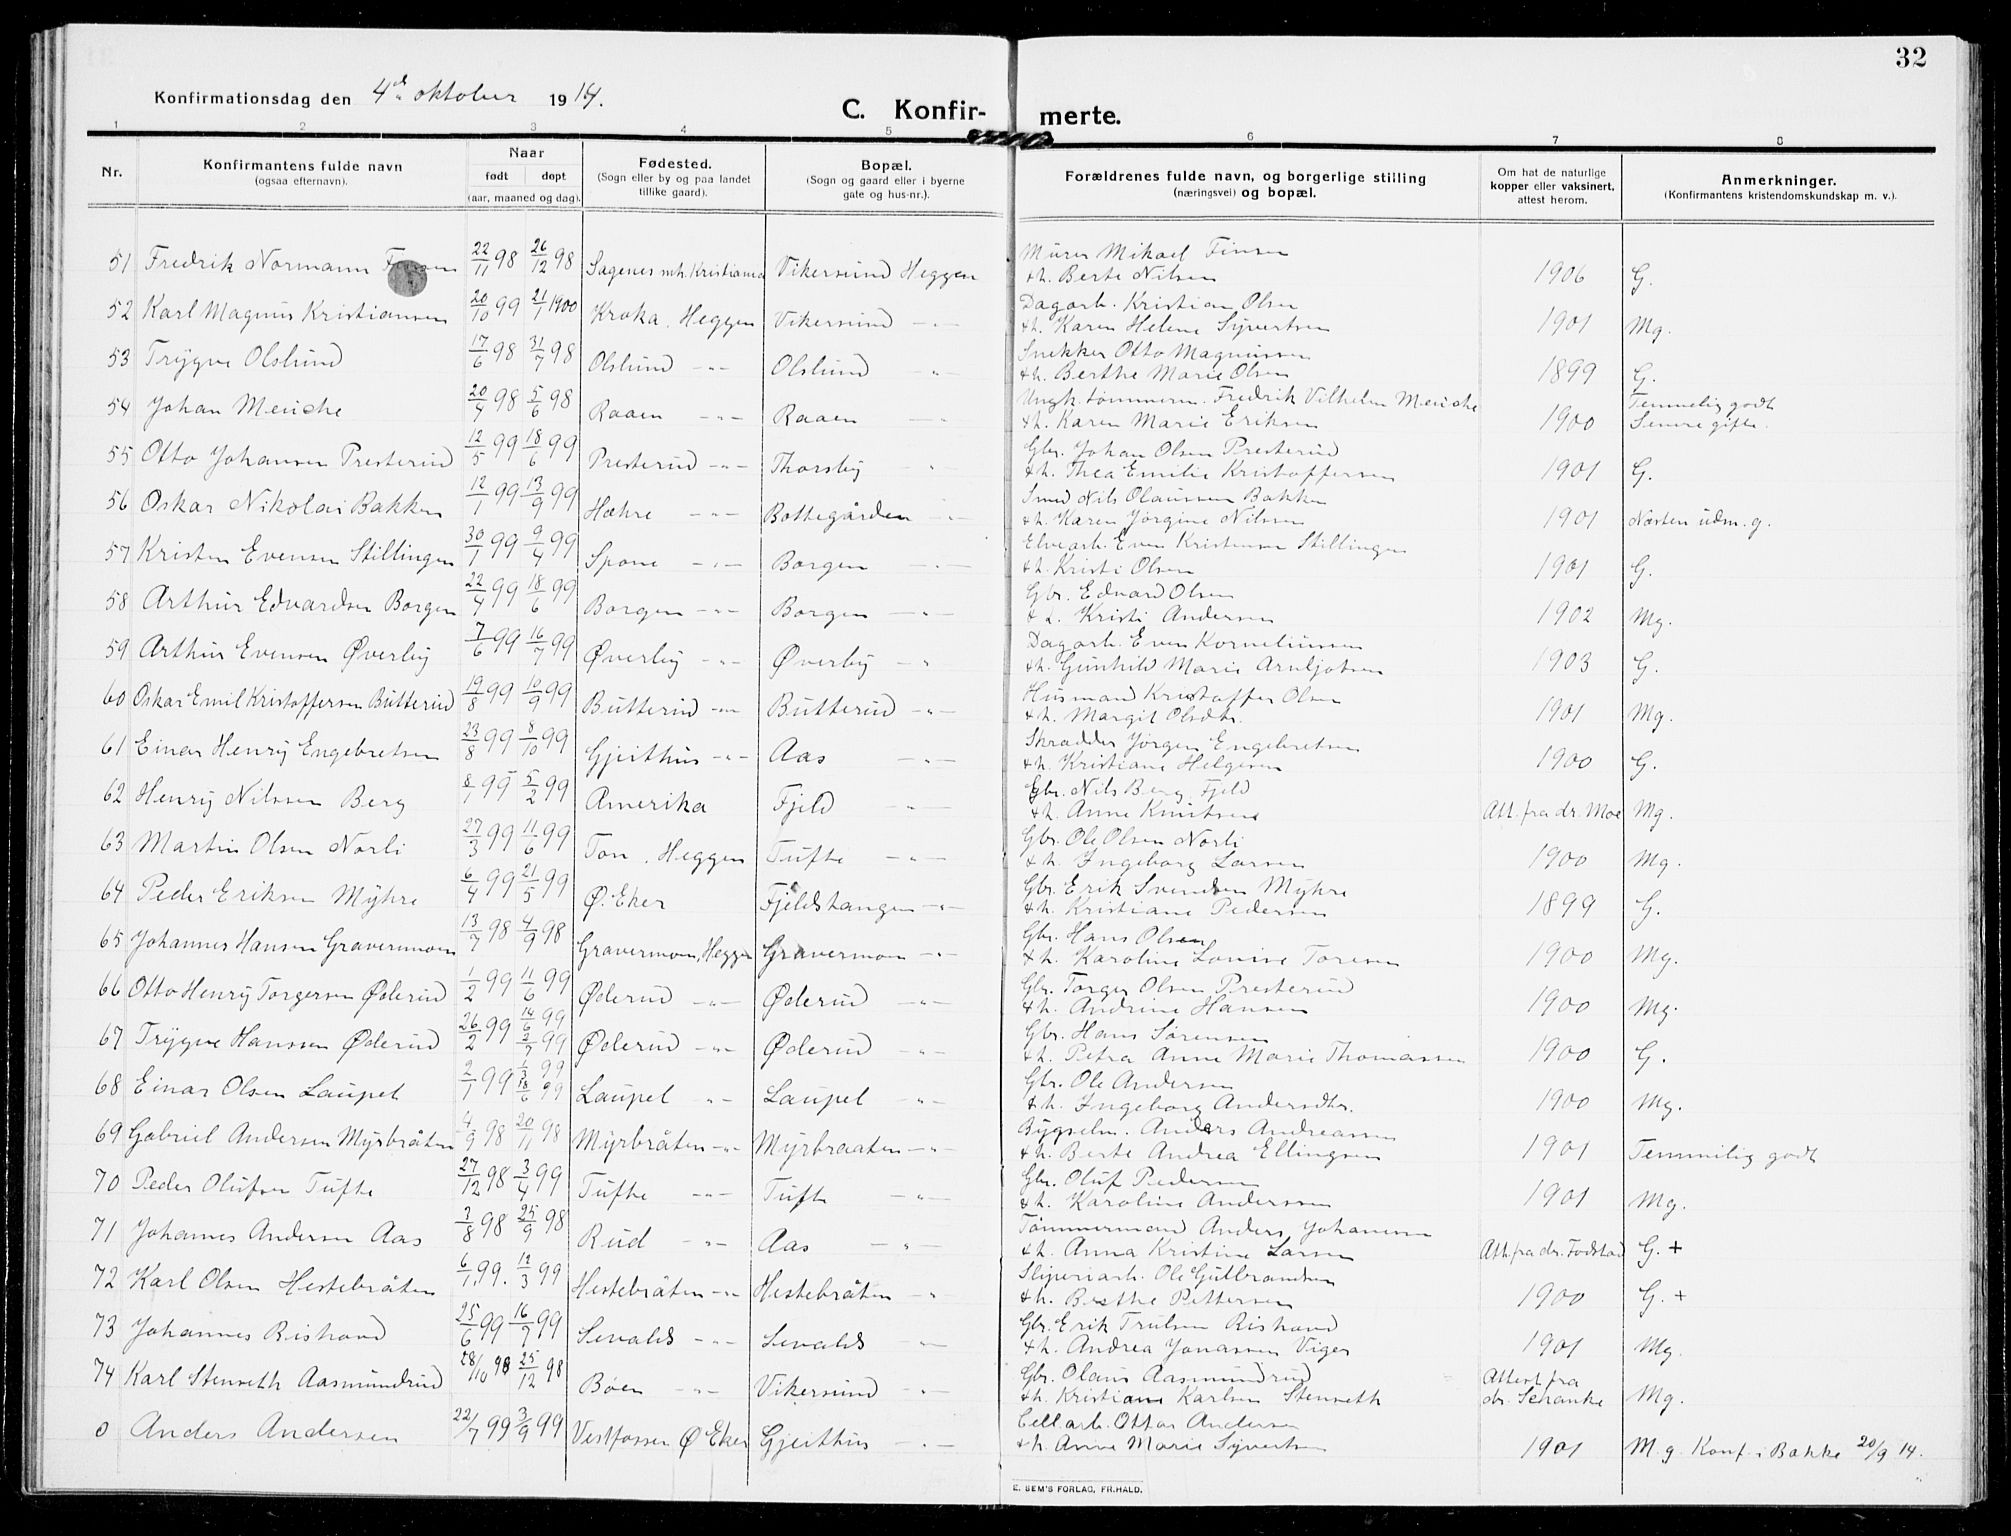 32
Konfirmationsdag den 4de oktober 1914.
C. Konfir- merte.
1 2 3 4 5 6 7 8
Nr.
Konfirmantens fulde navn
(ogsaa efternavn).
Naar
født døpt
(aar, maaned og dag).
Fødested.
(Sogn eller by og paa landet
tillike gaard).
Bopæl.
(Sogn og gaard eller i byerne
gate og hus-nr.).
Forældrenes fulde navn, og borgerlige stilling
(næringsvei) og bopæl.
Om hat de naturlige
kopper eller vaksinert,
attest herom.
Anmerkninger.
(Konfirmantens kristendomskundskap m. v.).
Murer Mikael Finsen
51 Fredrik Normann 22/11 98 26/12 98 Sagenes mh. Kristiania Vikersund Heggen + h. Berte Nilsen 1906 G.
Dagarb. Kristian Olsen
52 Karl Magnus Kristiansen 20/10 99 21/1 1900 Kroka, Heggen Vikersund -"- + h. Karen Helene Syvertsen 1901 Mg.
Snekker Otto Magnussen
53 Trygve Olslund 17/6 98 31/7 98 Olslund -"- Olslund -"- + h. Berthe Marie Olsen 1899 G.
Ungk. tømmerm. Fredrik Vilhelm Meiche Temmelig godt
54 Johan Meiche 20/4 98 5/6 98 Raaen -"- Raaen -"- + h. Karen Marie Eriksen 1900 Senere gift.
Gbr. Johan Olsen Presterud
55 Otto Johansen Presterud 12/5 99 18/6 99 Presterud -"- Thorsby -"- + h. Thea Emilie Kristoffersen 1901 G.
Smed Nils Olaussen Bakken
56 Oskar Nikolai Bakken 12/1 99 13/9 99 Hæhre -"- Bottegården -"- + h. Karen Jørgine Nilssen 1901 Næsten udm. g.
Elvearb. Even Kristensen Stillingen
57 Kristen Evensen Stillingen 30/1 99 9/4 99 Spone -"- Borgen -"- + h. Kristi Olsen 1901 G.
Gbr. Edvard Olsen
58 Arthur Edvardsen Borgen 22/4 99 18/6 99 Borgen -"- Borgen -"- + h. Kristi Andersen 1902 Mg.
Dagarb. Even Korneliussen
59 Arthur Evensen Øverby 7/6 99 16/7 99 Øverby -"- Øverby -"- + h. Gunhild Marie Arnljotsen 1903 G.
Husmand Kristoffer Olsen
60 Oskar Emil Kristoffersen Butterud 19/8 99 10/9 99 Butterud -"- Butterud -"- + h. Margit Olsdtr. 1901 Mg.
Skrædder Jørgen Engebretsen
61 Einar Henry Engebretsen 23/8 99 8/10 99 Gjeithus -"- Aas -"- + h. Kristiane Helgesen 1900 G.
Gbr. Nils Berg, Fjeld
62 Henry Nilssen Berg 8/1 99 5/2 99 Amerika Fjeld -"- + h. Anne Knutsen Att. fra dr. Moe Mg.
Gbr. Ole Olsen Norli
63 Martin Olsen Norli 27/3 99 11/6 99 Ton, Heggen Tufte -"- + h. Ingeborg Larsen 1900 Mg.
Gbr. Erik Svendsen Myhre
64 Peder Eriksen Myhre 6/4 99 21/5 99 Ø. Eker Fjeldstangen -"- + h. Kristiane Pedersen 1899 G.
Gbr. Hans Olsen
65 Johannes Hansen Gravermoen 13/7 98 4/9 98 Gravermoen, Heggen Gravermoen -"- + h. Karoline Lovise Toresen 1900 Mg.
Gbr. Torger Olsen Presterud
66 Otto Henry Torgersen Øderud 1/2 99 11/6 99 Øderud -"- Øderud -"- + h. Andrine Hansen 1900 Mg.
Gbr. Hans Sørensen
67 Trygve Hanssen Øderud 26/2 99 14/6 99 2/7 99 Øderud -"- Øderud -"- + h. Petra Anne Marie Thomassen 1900 G.
Gbr. Ole Andersen
68 Einar Olsen Laupet 2/1 99 1/3 99 18/6 99 Laupet -"- Laupet -"- + h. Ingeborg Andersdtr. 1900 Mg.
Bygselm. Anders Andreassen
69 Gabriel Andersen Myrbråten 4/9 98 20/11 98 Myrbråten -"- Myrbraaten -"- + h. Berte Andrea Ellingsen 1901 Temmelig godt
Gbr. Oluf Pedersen
70 Peder Olufsen Tufte 27/12 98 3/4 99 Tufte -"- Tufte -"- + h. Karoline Anderssen 1901 Mg.
Tømmermand Anders Johansen
71 Johannes Andersen Aas 3/8 98 25/9 98 Rud -"- Aas -"- + h. Anna Kristine Larsen Att. fra dr. Fodstad G. +
Sliperiarb. Ole Gulbrandsen
72 Karl Olsen Hestebråten 6/1 99. 12/3 99 Hestebråten -"- Hestebråten -"- + h. Berthe Pettersen 1900 G. +
Gbr. Erik Trulsen Ristvand
73 Johannes Ristvand 25/6 99 16/7 99 Sevalds -"- Sevalds -"- + h. Andrea Jonassen Viger 1901 Mg.
Gbr. Olaus Aasmundrud Attest fra
74 Karl Stenseth Aasmundrud 28/10 98 25/12 98 Bøen -"- Vikersund -"- + h. Kristiane Karlsen Stenseth dr. Schanke Mg.
Cell.arb. Ottar Andersen
0 Anders Andersen 22/7 99 3/9 99 Vestfossen Ø Eker Gjeithus -"- + h. Anne Marie Syvertsen 1901 M.g. Konf. i Bakke 20/9 14.
E. SEM'S FORLAG, FR.HALD.